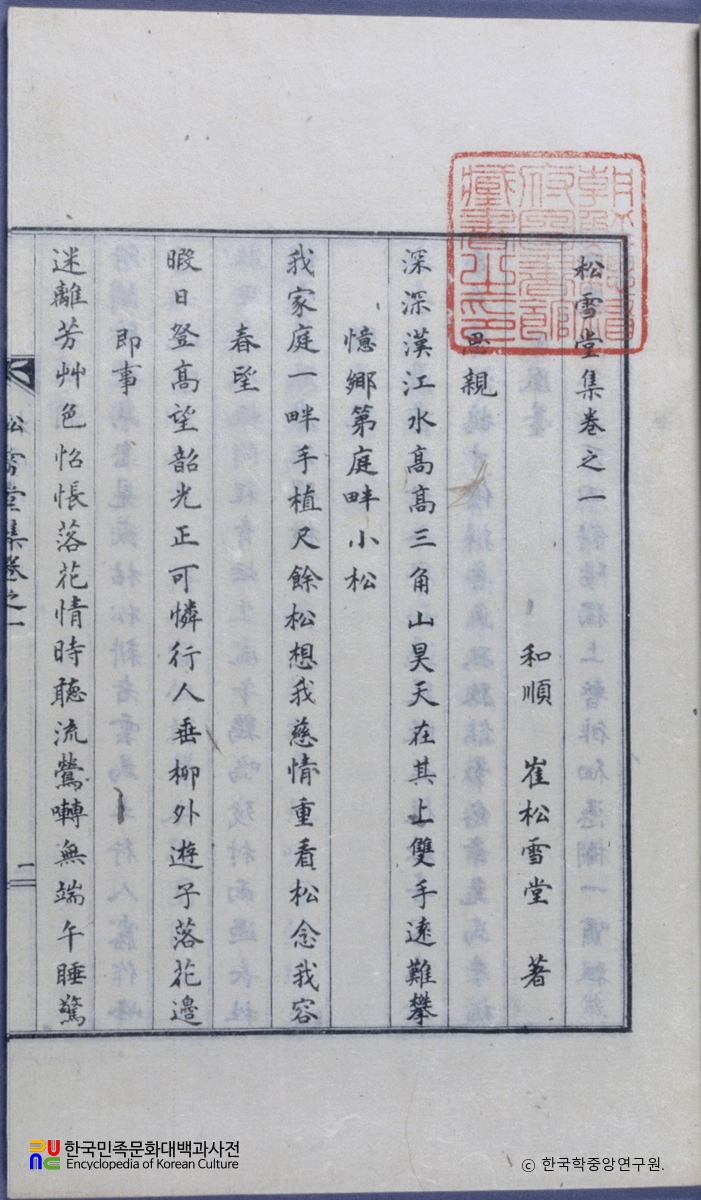 松雪堂集卷之一
和順 崔松雪堂 著
思親
深深漢江水高高三角山昊天在其上雙手遠難攀
憶鄉第庭畔小松
我家庭一畔手植尺餘松想我慈情重看松念我容
春望
暇日登高望韶光正可憐行人垂柳外遊子落花邊
即事
迷離芳艸色怊悵落花情時聽流鶯囀無端午睡驚
松雪堂集卷之一
一
朝鮮總督府圖書館藏書之印
한국민족문화대백과사전
Encyclopedia of Korean Culture
© 한국학중앙연구원.